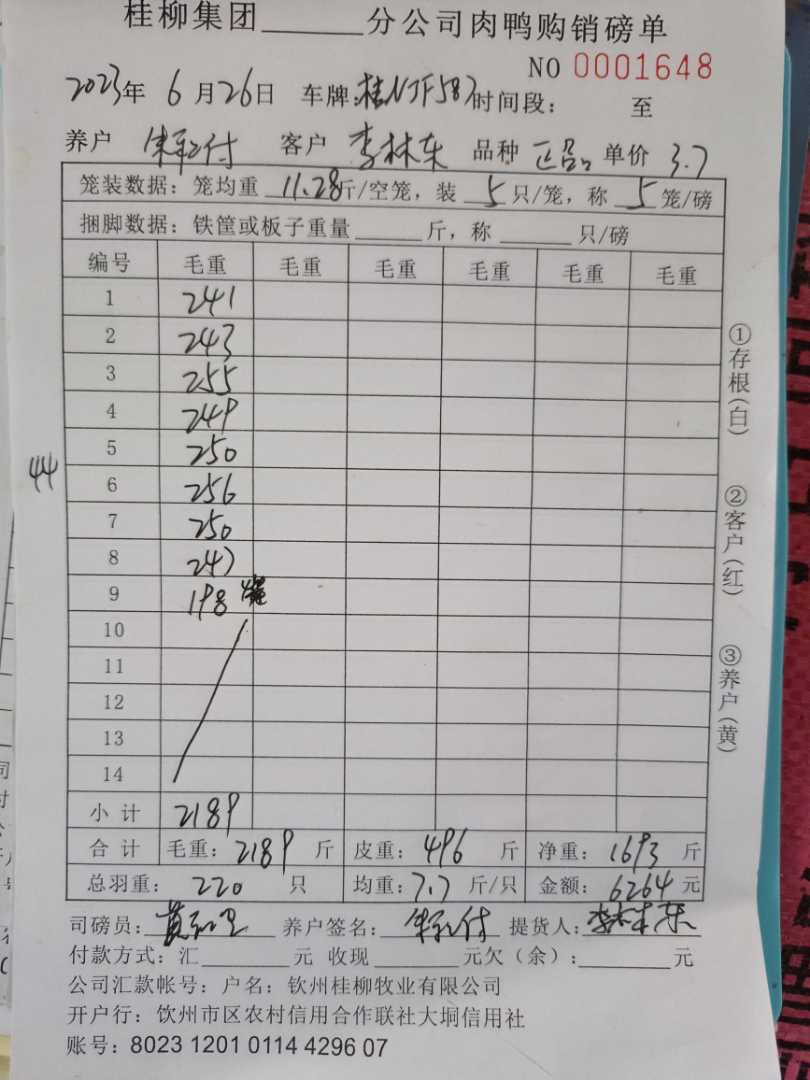 桂柳集团______分公司肉鸭购销磅单
NO 0001648
2023年 6月26日 车牌:桂NJF587 时间段: 至
养户 客户 李林东 品种 正品 单价 3.7
笼装数据:笼均重 11.28斤/空笼,装 5 只/笼,称 5 笼/磅
捆脚数据:铁筐或板子重量______斤,称______只/磅
编号 毛重 毛重 毛重 毛重 毛重 毛重
1 241
2 243
3 255
4 249
5 250
44
6 256
7 250
8 247
9 198 4笼
10
11
12
13
14
小计 2189
合计 毛重:2189 斤 皮重:496 斤 净重:1693 斤
总羽重: 220 只 均重:7.7 斤/只 金额:6264 元
司磅员: 养户签名: 提货人:李林东
付款方式:汇______元 收现______元欠(余):______元
公司汇款帐号:户名:钦州桂柳牧业有限公司
开户行:饮州市区农村信用合作联社大垌信用社
账号:8023 1201 0114 4296 07
①存根(白)
②客户(红)
③养户(黄)